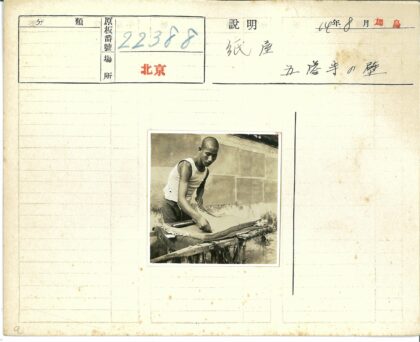 分類
原板番號
22388
場所
北京
説明
14年8月
紙屋
五塔寺の壁